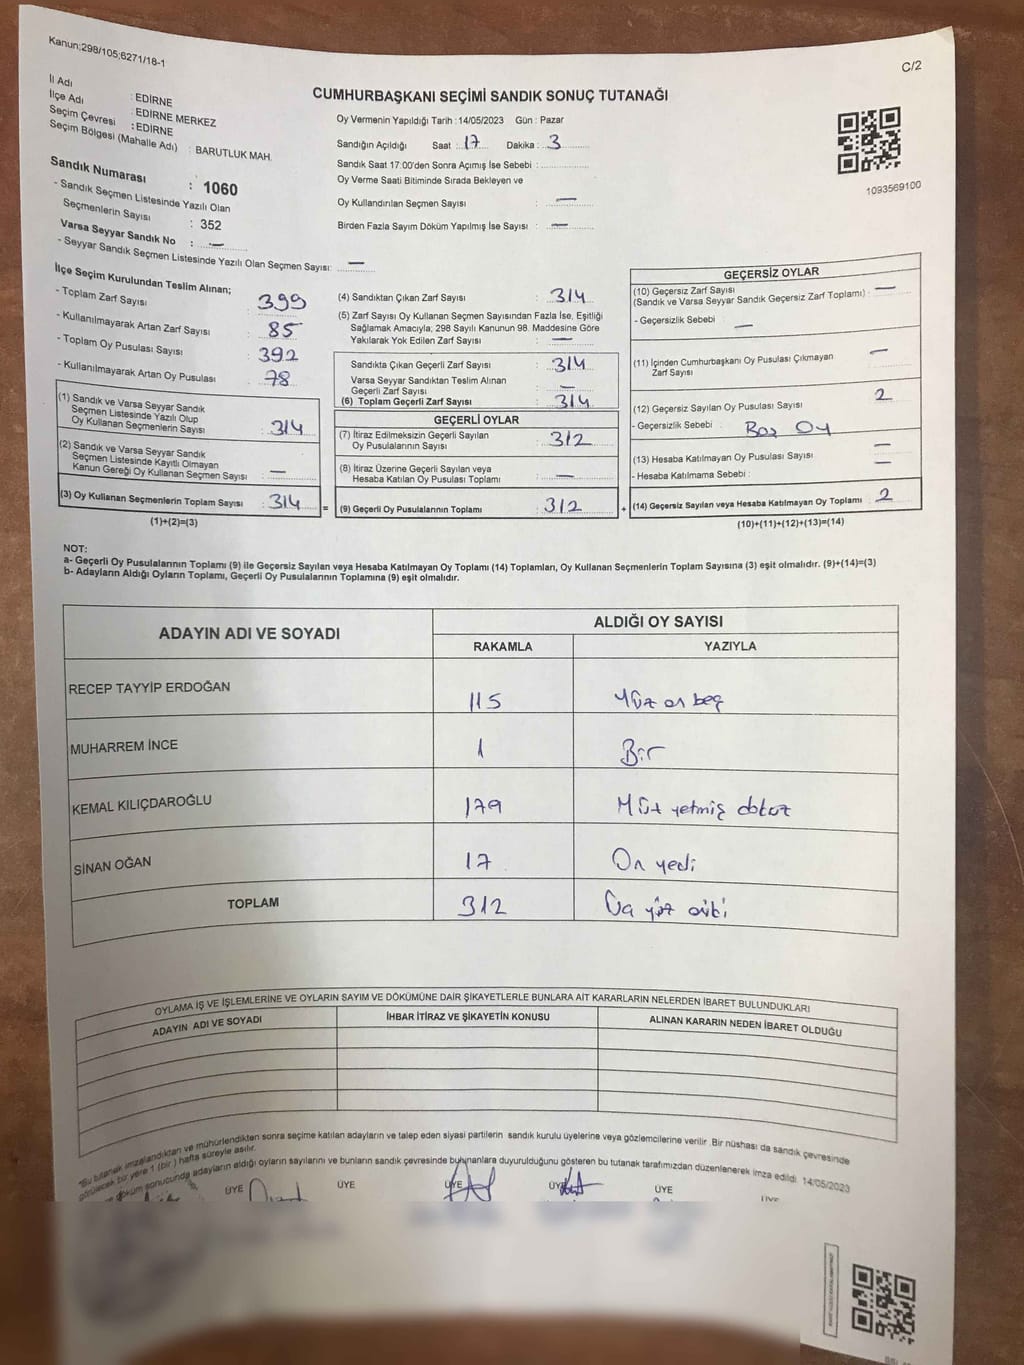 Kanun;298/105;6271/18-1
C/2
CUMHURBAŞKANI SEÇİMİ SANDIK SONUÇ TUTANAĞI
İl Adı : EDİRNE
İlçe Adı : EDİRNE MERKEZ
Seçim Çevresi : EDİRNE
Seçim Bölgesi (Mahalle Adı) : BARUTLUK MAH.
Sandık Numarası : 1060
- Sandık Seçmen Listesinde Yazılı Olan
Seçmenlerin Sayısı : 352
Varsa Seyyar Sandık No : —
- Seyyar Sandık Seçmen Listesinde Yazılı Olan Seçmen Sayısı: —
Oy Vermenin Yapıldığı Tarih :14/05/2023 Gün : Pazar
Sandığın Açıldığı Saat : 17 Dakika : 3
Sandık Saat 17:00'den Sonra Açımış İse Sebebi :
Oy Verme Saati Bitiminde Sırada Bekleyen ve
Oy Kullandırılan Seçmen Sayısı : —
Birden Fazla Sayım Döküm Yapılmış İse Sayısı : —
1093569100
İlçe Seçim Kurulundan Teslim Alınan;
- Toplam Zarf Sayısı : 399
- Kullanılmayarak Artan Zarf Sayısı : 85
- Toplam Oy Pusulası Sayısı : 392
- Kullanılmayarak Artan Oy Pusulası : 78
(1) Sandık ve Varsa Seyyar Sandık
Seçmen Listesinde Yazılı Olup
Oy Kullanan Seçmenlerin Sayısı : 314
(2) Sandık ve Varsa Seyyar Sandık
Seçmen Listesinde Kayıtlı Olmayan
Kanun Gereği Oy Kullanan Seçmen Sayısı : —
(3) Oy Kullanan Seçmenlerin Toplam Sayısı : 314
(1)+(2)=(3)
(4) Sandıktan Çıkan Zarf Sayısı : 314
(5) Zarf Sayısı Oy Kullanan Seçmen Sayısından Fazla İse, Eşitliği
Sağlamak Amacıyla; 298 Sayılı Kanunun 98. Maddesine Göre
Yakılarak Yok Edilen Zarf Sayısı : —
Sandıkta Çıkan Geçerli Zarf Sayısı : 314
Varsa Seyyar Sandıktan Teslim Alınan
Geçerli Zarf Sayısı : —
(6) Toplam Geçerli Zarf Sayısı : 314
GEÇERLİ OYLAR
(7) İtiraz Edilmeksizin Geçerli Sayılan
Oy Pusulalarının Sayısı : 312
(8) İtiraz Üzerine Geçerli Sayılan veya
Hesaba Katılan Oy Pusulası Toplamı : —
= (9) Geçerli Oy Pusulalarının Toplamı : 312 +
GEÇERSİZ OYLAR
(10) Geçersiz Zarf Sayısı
(Sandık ve Varsa Seyyar Sandık Geçersiz Zarf Toplamı) : —
- Geçersizlik Sebebi : —
(11) İçinden Cumhurbaşkanı Oy Pusulası Çıkmayan
Zarf Sayısı —
(12) Geçersiz Sayılan Oy Pusulası Sayısı : 2
- Geçersizlik Sebebi : Boş Oy
(13) Hesaba Katılmayan Oy Pusulası Sayısı : —
- Hesaba Katılmama Sebebi : —
(14) Geçersiz Sayılan veya Hesaba Katılmayan Oy Toplamı : 2
(10)+(11)+(12)+(13)=(14)
NOT:
a- Geçerli Oy Pusulalarının Toplamı (9) ile Geçersiz Sayılan veya Hesaba Katılmayan Oy Toplamı (14) Toplamları, Oy Kullanan Seçmenlerin Toplam Sayısına (3) eşit olmalıdır. (9)+(14)=(3)
b- Adayların Aldığı Oyların Toplamı, Geçerli Oy Pusulalarının Toplamına (9) eşit olmalıdır.
ADAYIN ADI VE SOYADI
ALDIĞI OY SAYISI
RAKAMLA YAZIYLA
RECEP TAYYİP ERDOĞAN 115 Yüz on beş
MUHARREM İNCE 1 Bir
KEMAL KILIÇDAROĞLU 179 Yüz yetmiş dokuz
SİNAN OĞAN 17 On yedi
TOPLAM 312 Üç yüz oniki
OYLAMA İŞ VE İŞLEMLERİNE VE OYLARIN SAYIM VE DÖKÜMÜNE DAİR ŞİKAYETLERLE BUNLARA AİT KARARLARIN NELERDEN İBARET BULUNDUKLARI
ADAYIN ADI VE SOYADI İHBAR İTİRAZ VE ŞİKAYETİN KONUSU ALINAN KARARIN NEDEN İBARET OLDUĞU
"Bu tutanak imzalandıktan ve mühürlendikten sonra seçime katılan adayların ve talep eden siyasi partilerin sandık kurulu üyelerine veya gözlemcilerine verilir .Bir nüshası da sandık çevresinde
görülecek bir yere 1 (bir ) hafta süreyle asılır.
döküm sonucunda adayların aldığı oyların sayılarını ve bunların sandık çevresinde bulunanlara duyurulduğunu gösteren bu tutanak tarafımızdan düzenlenerek imza edildi. 14/05/2023
ÜYE ÜYE ÜYE ÜYE ÜYE ÜYE